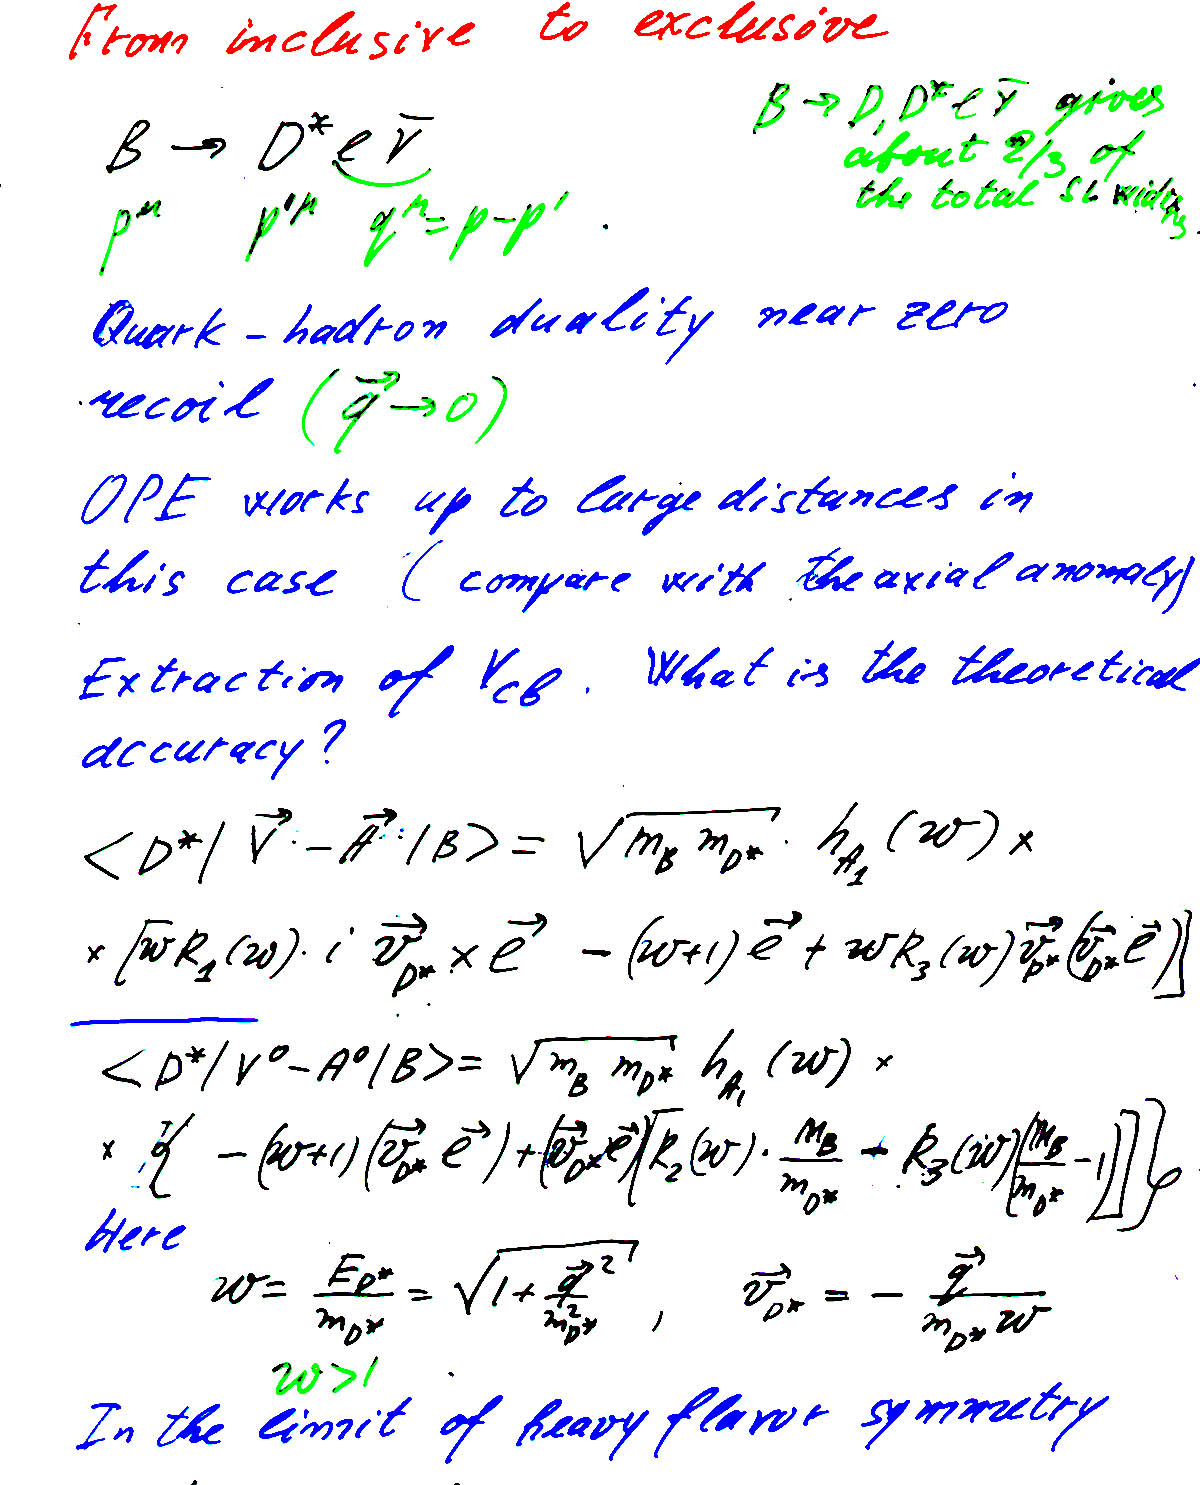 From inclusive to exclusive
B → D* e ν̄
B → D, D* e ν̄ gives
about 2/3 of
the total SL width
p^μ p'^μ q^μ = p - p'
Quark-hadron duality near zero
recoil (q⃗ → 0)
OPE works up to large distances in
this case (compare with the axial anomaly)
Extraction of V_cb. What is the theoretical
accuracy?
<D*| V⃗ - A⃗ |B> = √(m_B m_D*) · h_A1 (w) ×
× [w R_1(w) · i v⃗_D* × e⃗ - (w+1) e⃗ + w R_3(w) v⃗_D* (v⃗_D* e⃗)]
<D*| V⁰ - A⁰ |B> = √(m_B m_D*) h_A1 (w) ×
× { - (w+1) (v⃗_D* e⃗) + (v⃗_D* e⃗) [R_2(w) · M_B/m_D* - R_3(w) [M_B/m_D* - 1]] }
Here
w = E_D*/m_D* = √(1 + q⃗²/m²_D*) , v⃗_D* = - q⃗/(m_D* w)
w > 1
In the limit of heavy flavor symmetry